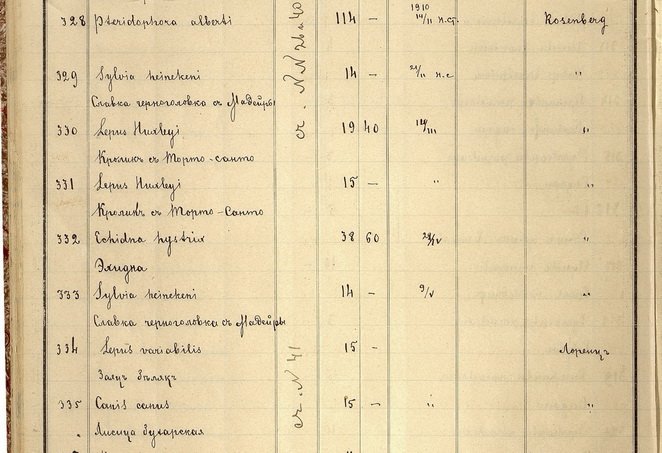 328 Pteridophora alberti 114 — 1910 14/II н.ст. Rosenberg
329 Sylvia heinekeni 14 — 21/II н.с "
Славка черноголовка съ Мадейры
330 Lepus Huxleyi 19 40 "
Кроликъ съ Порто-санто
331 Lepus Huxleyi 15 — " "
Кроликъ съ Порто-Санто
332 Echidna hystrix 38 60 "
Эхидна
333 Sylvia heinekeni 14 — 9/V "
Славка черноголовка съ Мадейры
334 Lepus variabilis 15 — Лоренцъ
Заяцъ бѣлякъ
335 Canis canus 15 — " "
Лисица бухарская
сч. N N 26 и 40
сч. N 41